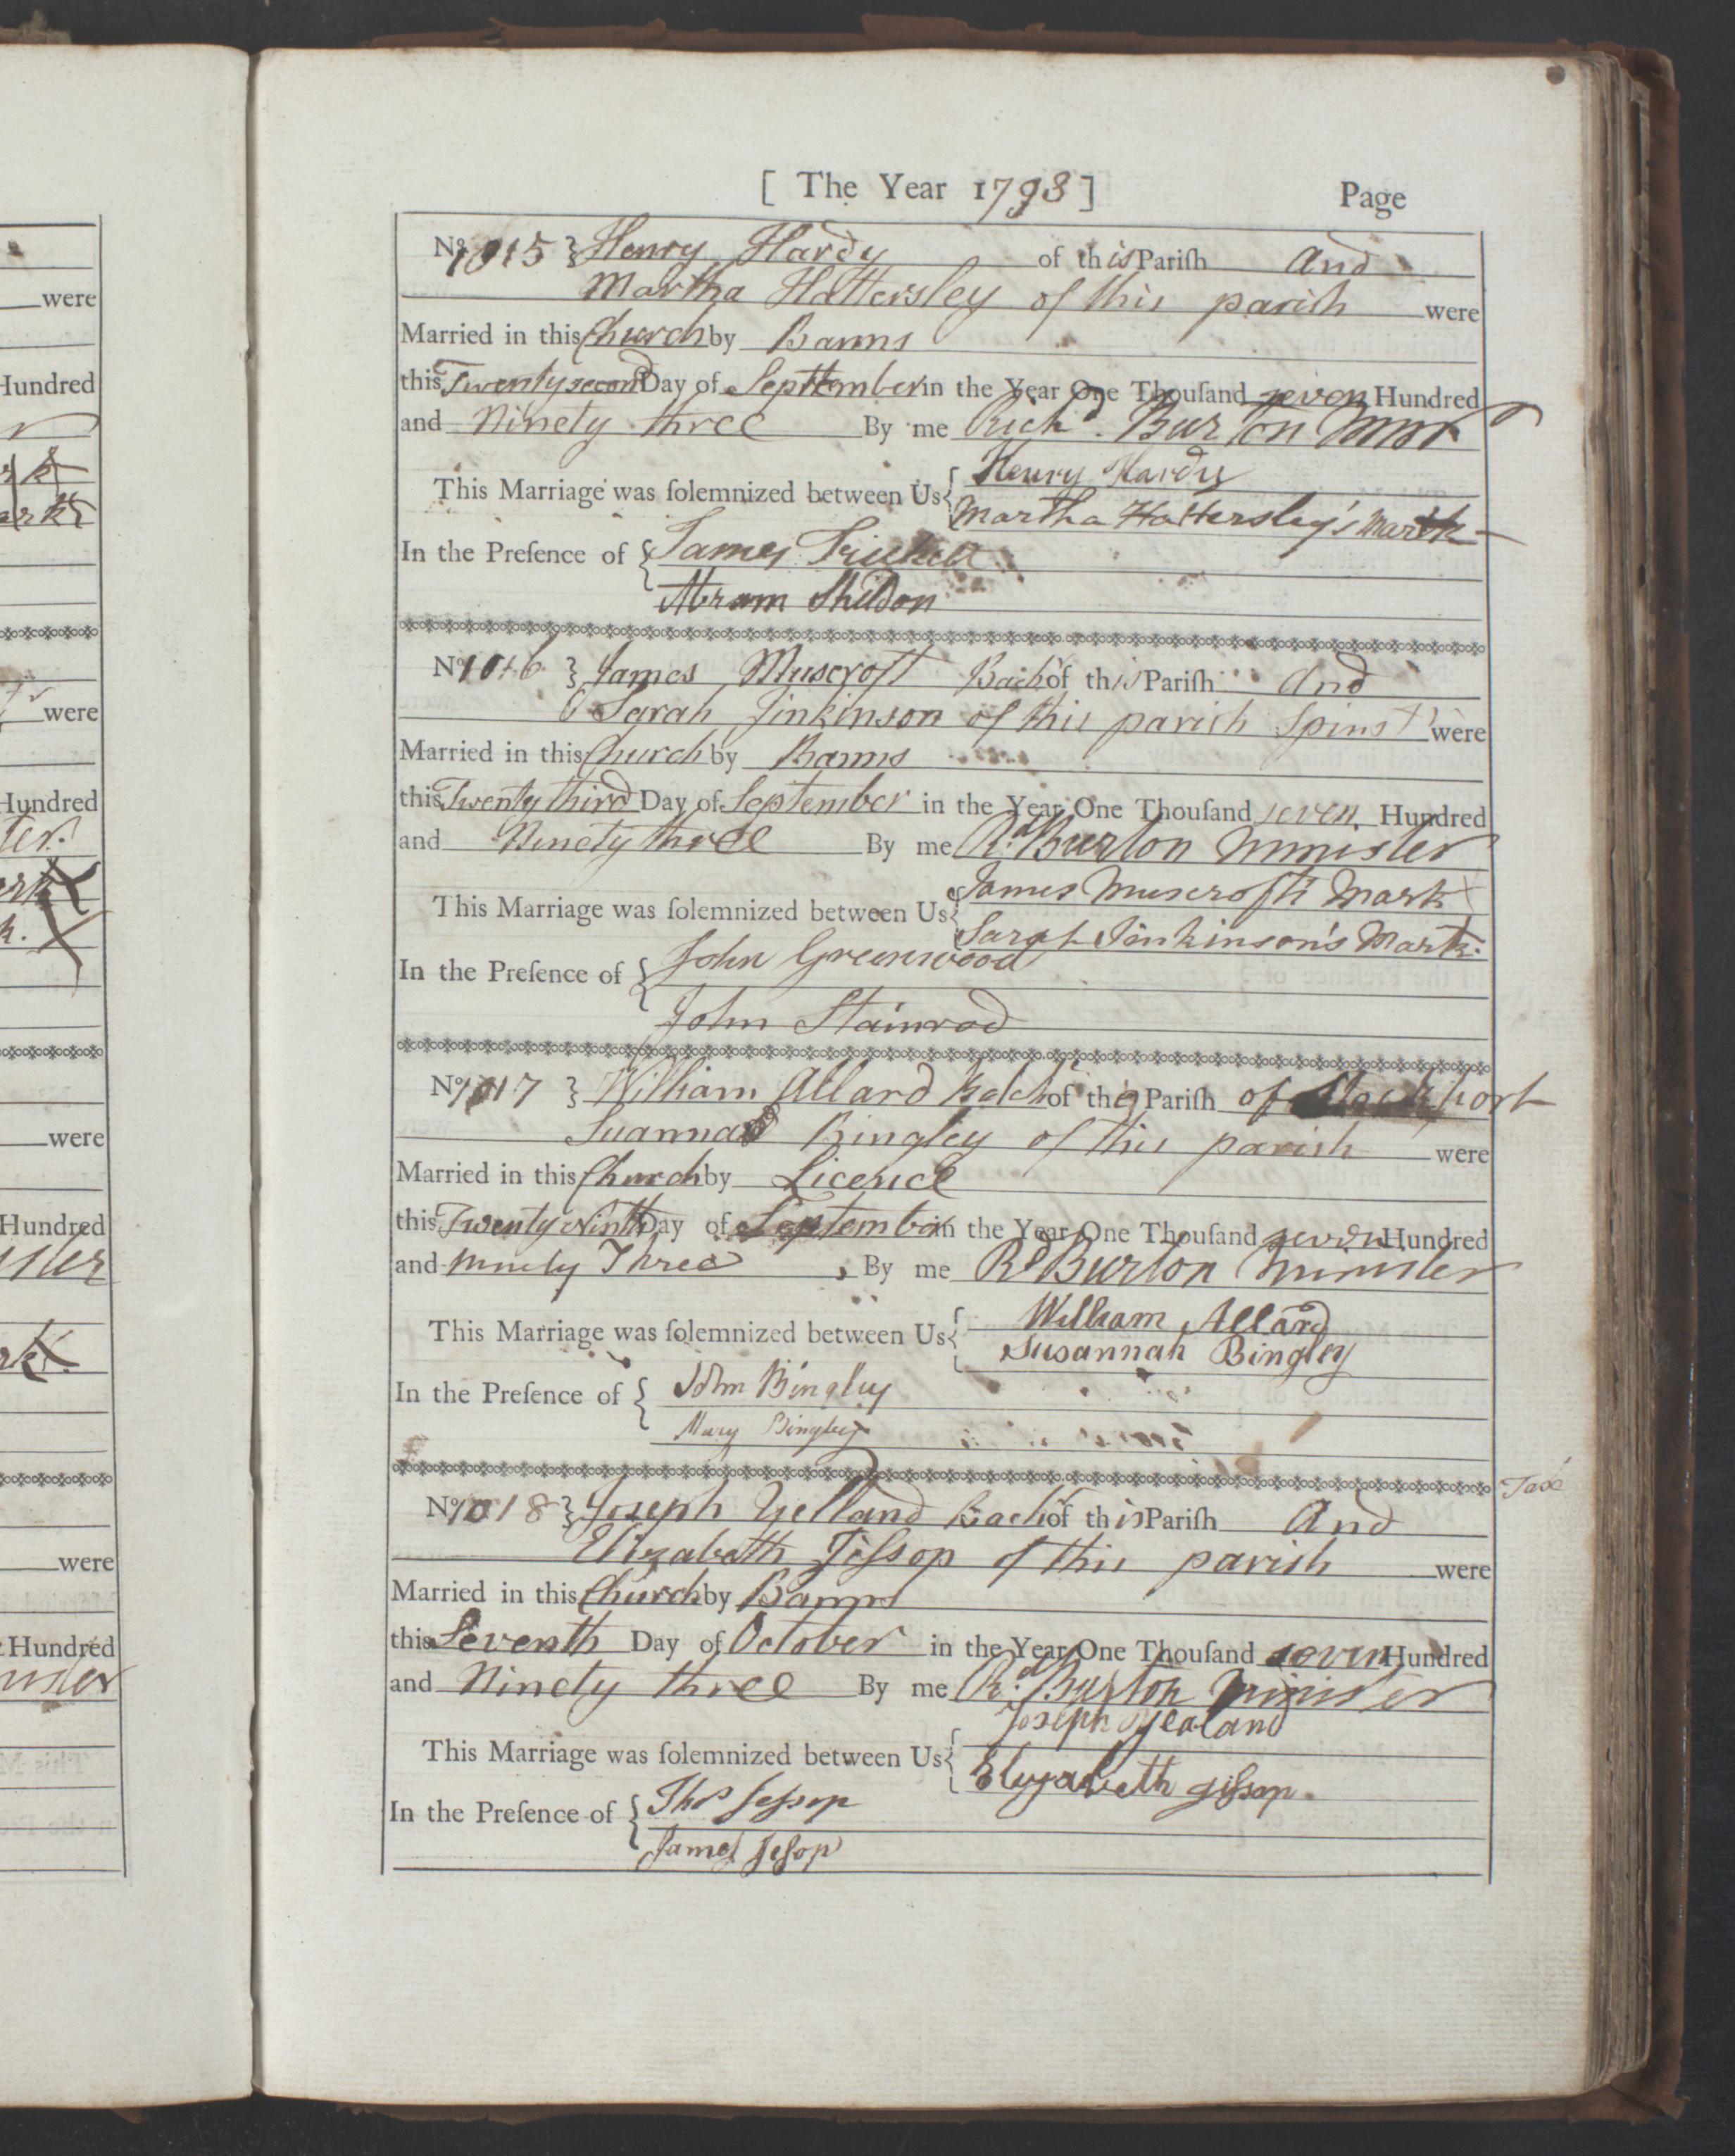 [ The Year 1793 ] Page
No 1015 } Henry Hardy of this Pariſh And
Martha Hattersley of this parish were
Married in this Church by Banns
this Twenty second Day of September in the Year One Thouſand seven Hundred
and Ninety three By me Richd. Burton Minr
This Marriage was ſolemnized between Us { Henry Hardy
Martha Hattersley's Mark
In the Preſence of { James Trickett
Abram Sheldon
No 1016 } James Muscroft Bachr of this Pariſh And
Sarah Jinkinson of this parish Spinstr were
Married in this Church by Banns
this Twenty third Day of September in the Year One Thouſand seven Hundred
and Ninety three By me Rd. Burton Minister
This Marriage was ſolemnized between Us { James Muscroft's Mark X
Sarah Jinkinson's Mark
In the Preſence of { John Greenwood
John Stainrod
No 1017 } William Allard Bachr of the Pariſh of Stockport
Bingley of this parish were
Married in this Church by Licence
this Twenty Ninth Day of September in the Year One Thouſand seven Hundred
and Ninety Three By me Rd Burton Minister
This Marriage was ſolemnized between Us { William Allard
Susannah Bingley
In the Preſence of { John Bingley
Mary Bingley
No 1018 } Joseph Yelland Bachr of this Pariſh And
Elizabeth Jeſsop of this parish were
Married in this Church by Banns
this Seventh Day of October in the Year One Thouſand seven Hundred
and Ninety three By me Rd. Burton Minister
This Marriage was ſolemnized between Us { Joseph Yealand
Elizabeth Jeſsop.
In the Preſence of { Thos Jeſsop
James Jeſsop
were
Hundred
were
Hundred
were
Hundred
were
Hundred